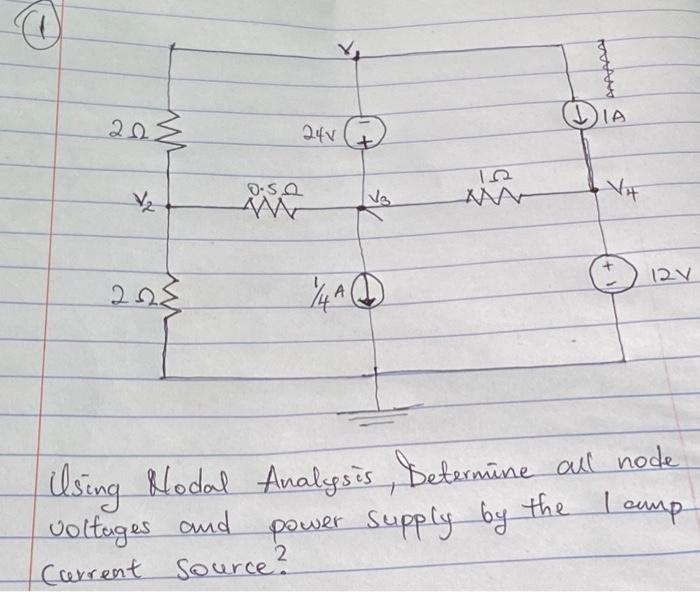 1
V₁
2Ω
24V
-
+
1A
V₂
0.5Ω
V3
1Ω
V4
2Ω
1/4 A
+
-
12V
Using Nodal Analysis, Determine all node
voltages and power supply by the 1 amp
Current Source?